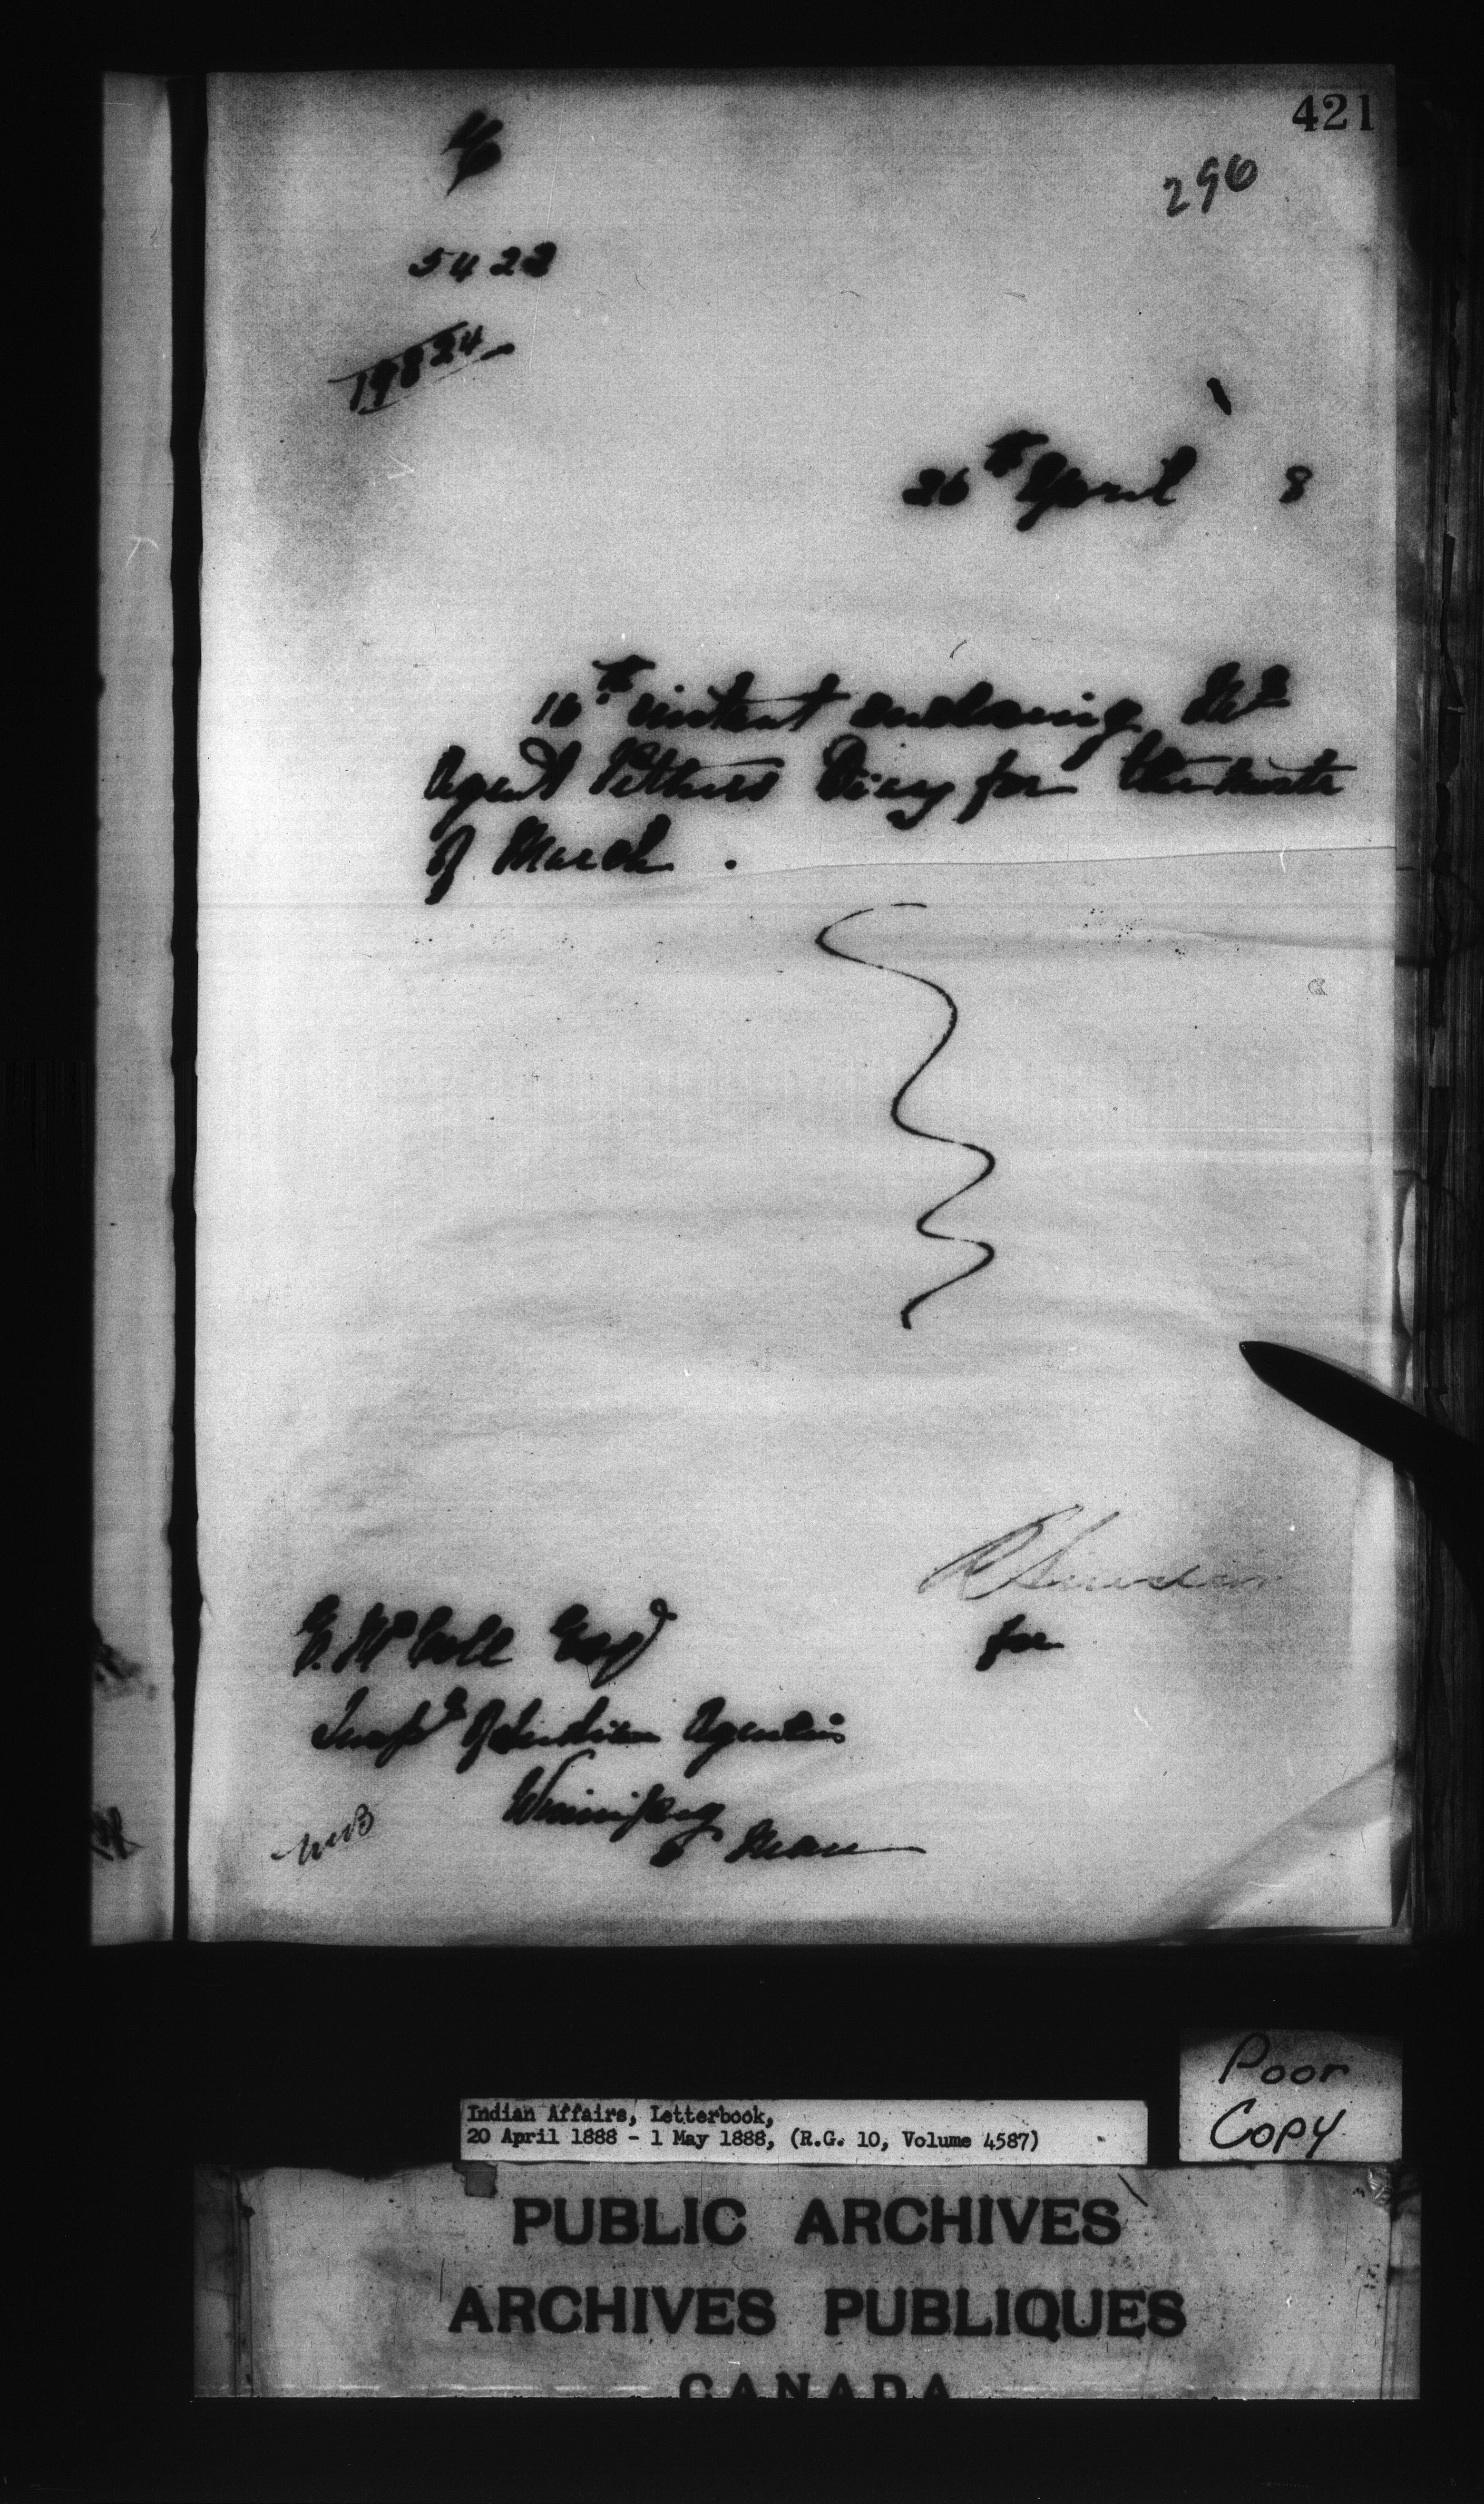 421
296
5422
19824
26th April 8
instant enclosing Mr
Agent Pithers Diary for the month
of March .
R Sinclair
for
E. McColl Esqr
Inspr of Indian Agencies
Winnipeg
Man
Poor
Copy
Indian Affairs, Letterbook,
20 April 1888 - 1 May 1888, (R.G. 10, Volume 4587)
PUBLIC ARCHIVES
ARCHIVES PUBLIQUES
CANADA